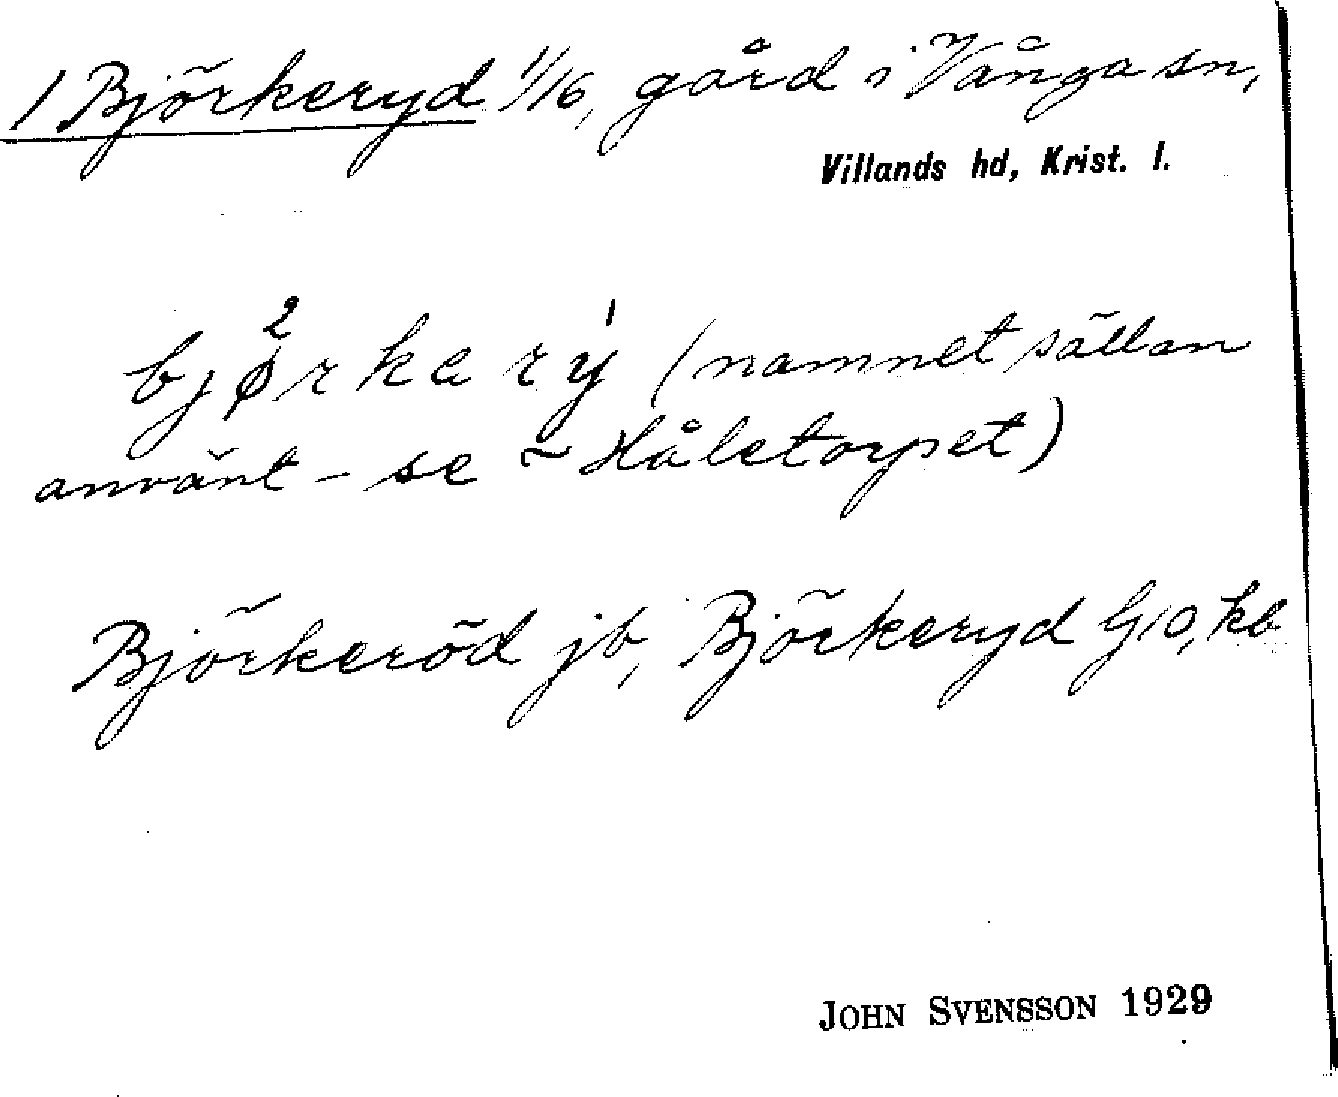 1 Björkeryd 1/16, gård i Vånga sn,
Villands hd, Krist. l.
bjørkary (namnet sällan
använt - se ~ Håletorpet)
Björkeröd jb, Björkeryd G10, kb
JOHN SVENSSON 1929